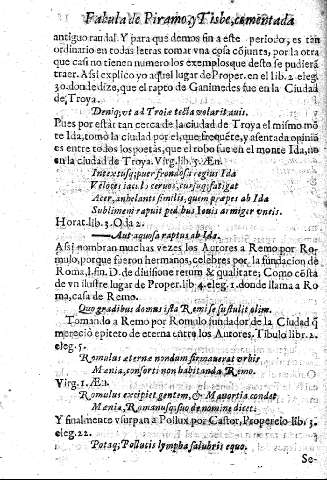 Fabula de Piramo, y Tisbe, comentada
antiguo raudal. Y para que demos fin a este periodo, es ten
ordinario en todas letras tomar vna cosa cõjunta, por la otra
que casi no tienen numero los exemplos que desto se pudierã
traer. Asi explico yo aquel lugar de Proper. en el lib. 2. eleg.
30. donde dize, que el rapto de Ganimedes fue en la Ciudad
de Troya.
Deniq; vt ad Troiæ tecta volarit auis.
Pues por estar tan cerca de la ciudad de Troya el mismo mõ
te Ida, tomò la ciudad por el, que frequẽte, y asentada opiniõ
es entre todos los poetas, que el robo fue en el monte Ida, no
en la ciudad de Troya. Virg. lib. 5. Æn.
Intextusq; puer frondosa regius Ida
Veloces iaculo ceruos, cursuq; fatigat
Acer, anhelanti similis, quem præpes ab Ida
Sublimem rapuit pedibus Iouis armiger vncis.
Horat. lib. 3. Oda 2.
Aut aquosa raptus ab Ida.
Asi nombran muchas vezes los Autores a Remo por Ro-
mulo, porque fueron hermanos, celebres por la fundacion de
Roma, l. fin. D. de diuisione rerum & qualitate; Como cõsta
de vn ilustre lugar de Proper. lib. 4. eleg. 1. donde llama a Ro
ma, casa de Remo.
Quo gradibus domus ista Remi se sustulit olim.
Tomando a Remo por Romulo fundador de la Ciudad q̃
mereciò epiteto de eterna entre los Autores. Tibulo libr. 2.
eleg. 5.
Romulus æternæ nondum firmauerat vrbis
Mœnia, consorti non habitanda Remo.
Virg. 1. Æn.
Romulus excipiet gentem, & Mauortia condet
Mœnia, Romanosq; suo de nomine dicet.
Y finalmente vsurpan a Pollux por Castor, Propercio lib. 3.
eleg. 22.
Potaq; Pollucis lympha salubris equo.
Se-